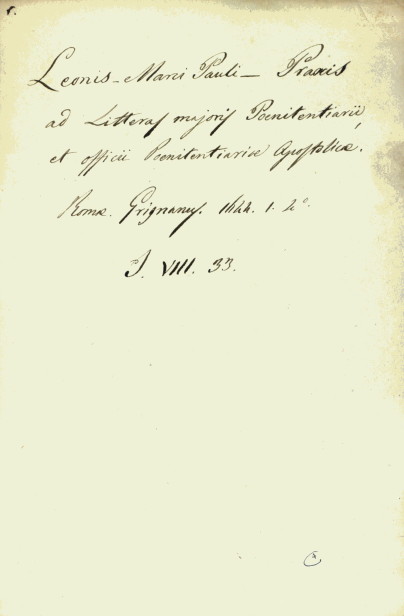 Leonis-Marci Pauli - Praxis
ad Litteras majoris Poenitentiarii,
et officii Poenitentiariæ Apostolicæ.
Romæ. Grignanus. 1644. 1. 4°.
J. VIII. 33.